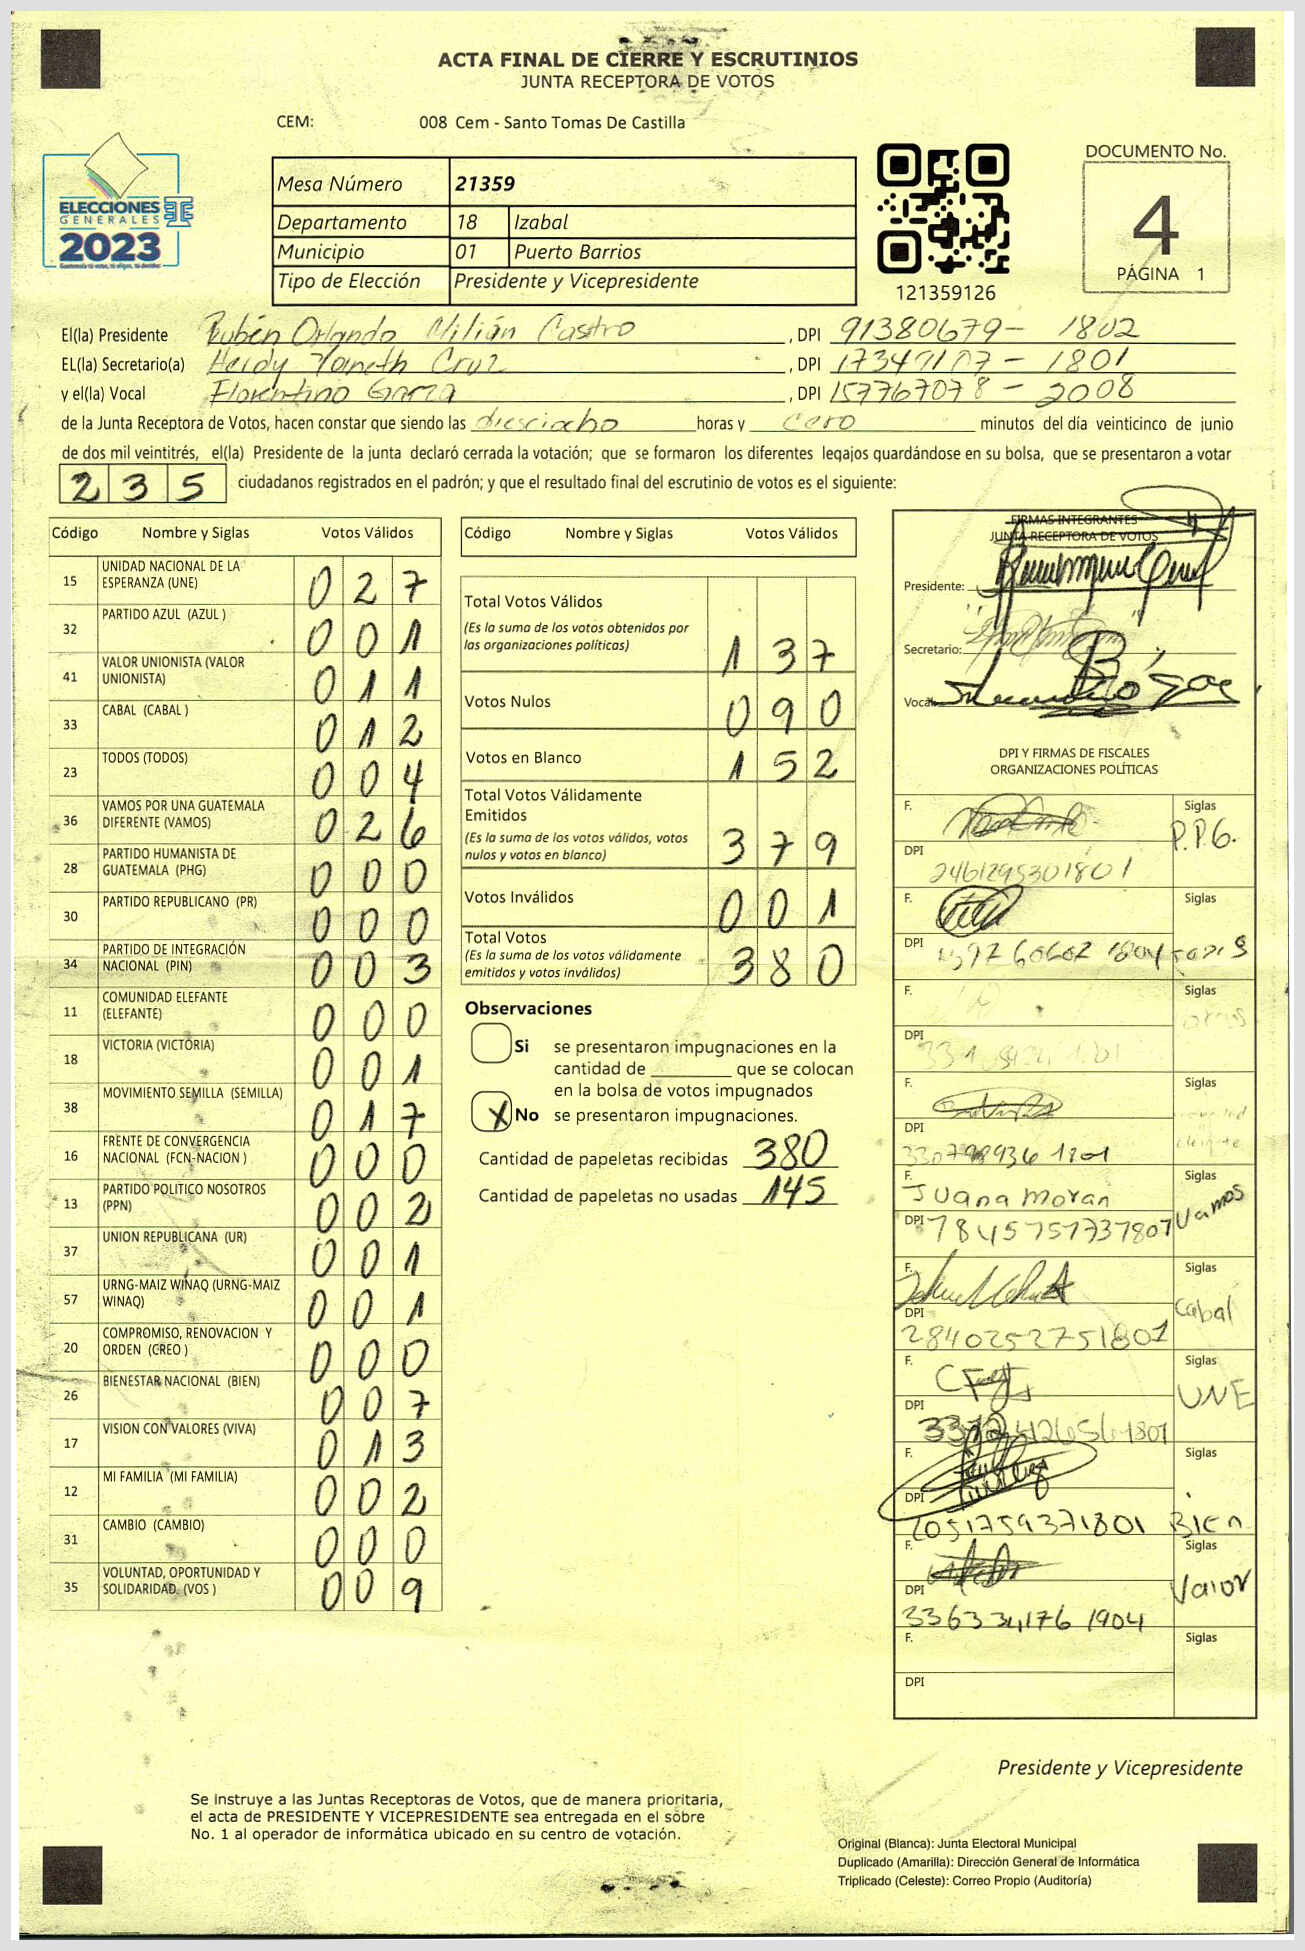 ACTA FINAL DE CIERRE Y ESCRUTINIOS
JUNTA RECEPTORA DE VOTOS
CEM: 008 Cem - Santo Tomas De Castilla
ELECCIONES
GENERALES
2023
Mesa Número 21359
Departamento 18 Izabal
Municipio 01 Puerto Barrios
Tipo de Elección Presidente y Vicepresidente
121359126
DOCUMENTO No.
4
PÁGINA 1
El(la) Presidente Rubén Orlando Milián Castro , DPI 91380679 - 1802
EL(la) Secretario(a) Heidy Yaneth Cruz , DPI - 1801
y el(la) Vocal Florentino Garza , DPI 157767078 - 2008
de la Junta Receptora de Votos, hacen constar que siendo las diesciocho horas y cero minutos del día veinticinco de junio
de dos mil veintitrés, el(la) Presidente de la junta declaró cerrada la votación; que se formaron los diferentes legajos guardándose en su bolsa, que se presentaron a votar
235 ciudadanos registrados en el padrón; y que el resultado final del escrutinio de votos es el siguiente:
Código Nombre y Siglas Votos Válidos
15 UNIDAD NACIONAL DE LA ESPERANZA (UNE) 027
32 PARTIDO AZUL (AZUL ) 001
41 VALOR UNIONISTA (VALOR UNIONISTA) 011
33 CABAL (CABAL ) 012
23 TODOS (TODOS) 004
36 VAMOS POR UNA GUATEMALA DIFERENTE (VAMOS) 026
28 PARTIDO HUMANISTA DE GUATEMALA (PHG) 000
30 PARTIDO REPUBLICANO (PR) 000
34 PARTIDO DE INTEGRACIÓN NACIONAL (PIN) 003
11 COMUNIDAD ELEFANTE (ELEFANTE) 000
18 VICTORIA (VICTORIA) 001
38 MOVIMIENTO SEMILLA (SEMILLA) 017
16 FRENTE DE CONVERGENCIA NACIONAL (FCN-NACION ) 000
13 PARTIDO POLITICO NOSOTROS (PPN) 002
37 UNION REPUBLICANA (UR) 001
57 URNG-MAIZ WINAQ (URNG-MAIZ WINAQ) 001
20 COMPROMISO, RENOVACION Y ORDEN (CREO ) 000
26 BIENESTAR NACIONAL (BIEN) 007
17 VISION CON VALORES (VIVA) 013
12 MI FAMILIA (MI FAMILIA) 002
31 CAMBIO (CAMBIO) 000
35 VOLUNTAD, OPORTUNIDAD Y SOLIDARIDAD (VOS ) 009
Código Nombre y Siglas Votos Válidos
Total Votos Válidos
(Es la suma de los votos obtenidos por
las organizaciones políticas) 137
Votos Nulos 090
Votos en Blanco 152
Total Votos Válidamente
Emitidos
(Es la suma de los votos válidos, votos
nulos y votos en blanco) 379
Votos Inválidos 001
Total Votos
(Es la suma de los votos válidamente
emitidos y votos inválidos) 380
Observaciones
Si se presentaron impugnaciones en la
cantidad de ________ que se colocan
en la bolsa de votos impugnados
X No se presentaron impugnaciones.
Cantidad de papeletas recibidas 380
Cantidad de papeletas no usadas 145
FIRMAS INTEGRANTES
JUNTA RECEPTORA DE VOTOS
Presidente:
Secretario:
Vocal:
DPI Y FIRMAS DE FISCALES
ORGANIZACIONES POLÍTICAS
F. Siglas P.P.G.
DPI 2461295301801
F. Siglas
DPI
F. Siglas
DPI
F. Siglas
DPI
F. Juana Moran Siglas Vamos
DPI 7845757737807
F. Siglas Cabal
DPI 2840252751801
F. Siglas UNE
DPI
F. Siglas BIEN
DPI 2051759371801
F. Siglas Valor
DPI 336334176 1904
F. Siglas
DPI
Presidente y Vicepresidente
Se instruye a las Juntas Receptoras de Votos, que de manera prioritaria,
el acta de PRESIDENTE Y VICEPRESIDENTE sea entregada en el sobre
No. 1 al operador de informática ubicado en su centro de votación.
Original (Blanca): Junta Electoral Municipal
Duplicado (Amarilla): Dirección General de Informática
Triplicado (Celeste): Correo Propio (Auditoría)